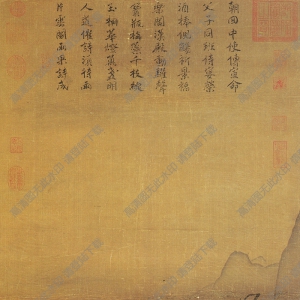 朝回中使傳宣命
父子同班侍宴榮
酒捧倪觴祈景福
樂聞漢殿動驩聲
寶瓶梅蘂千枝綻
玉柵華燈萬盞明
人道催詩須待雨
片雲閣雨果詩成